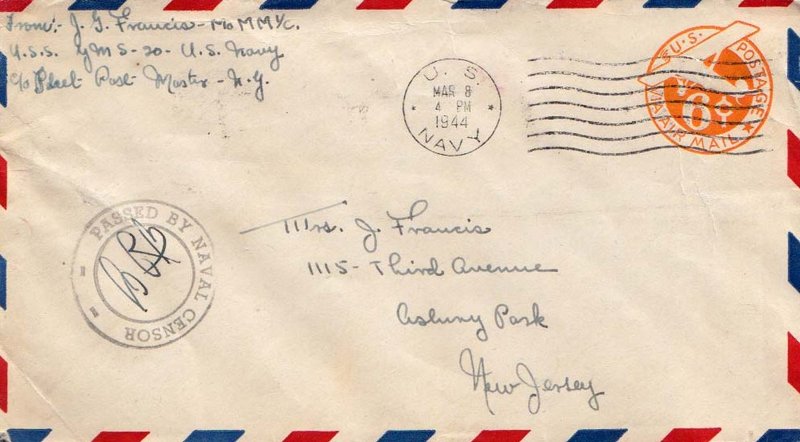 From:- J. G. Francis - MoMM1/c.
U.S.S. YMS-20- U.S. Navy
c/o Fleet Post Master - N.Y.
U. S.
MAR 8
4 PM
1944
NAVY
U.S. POSTAGE
6¢
VIA AIR MAIL
PASSED BY NAVAL CENSOR
Mrs. J. Francis
1115- Third Avenue
Asbury Park
New Jersey